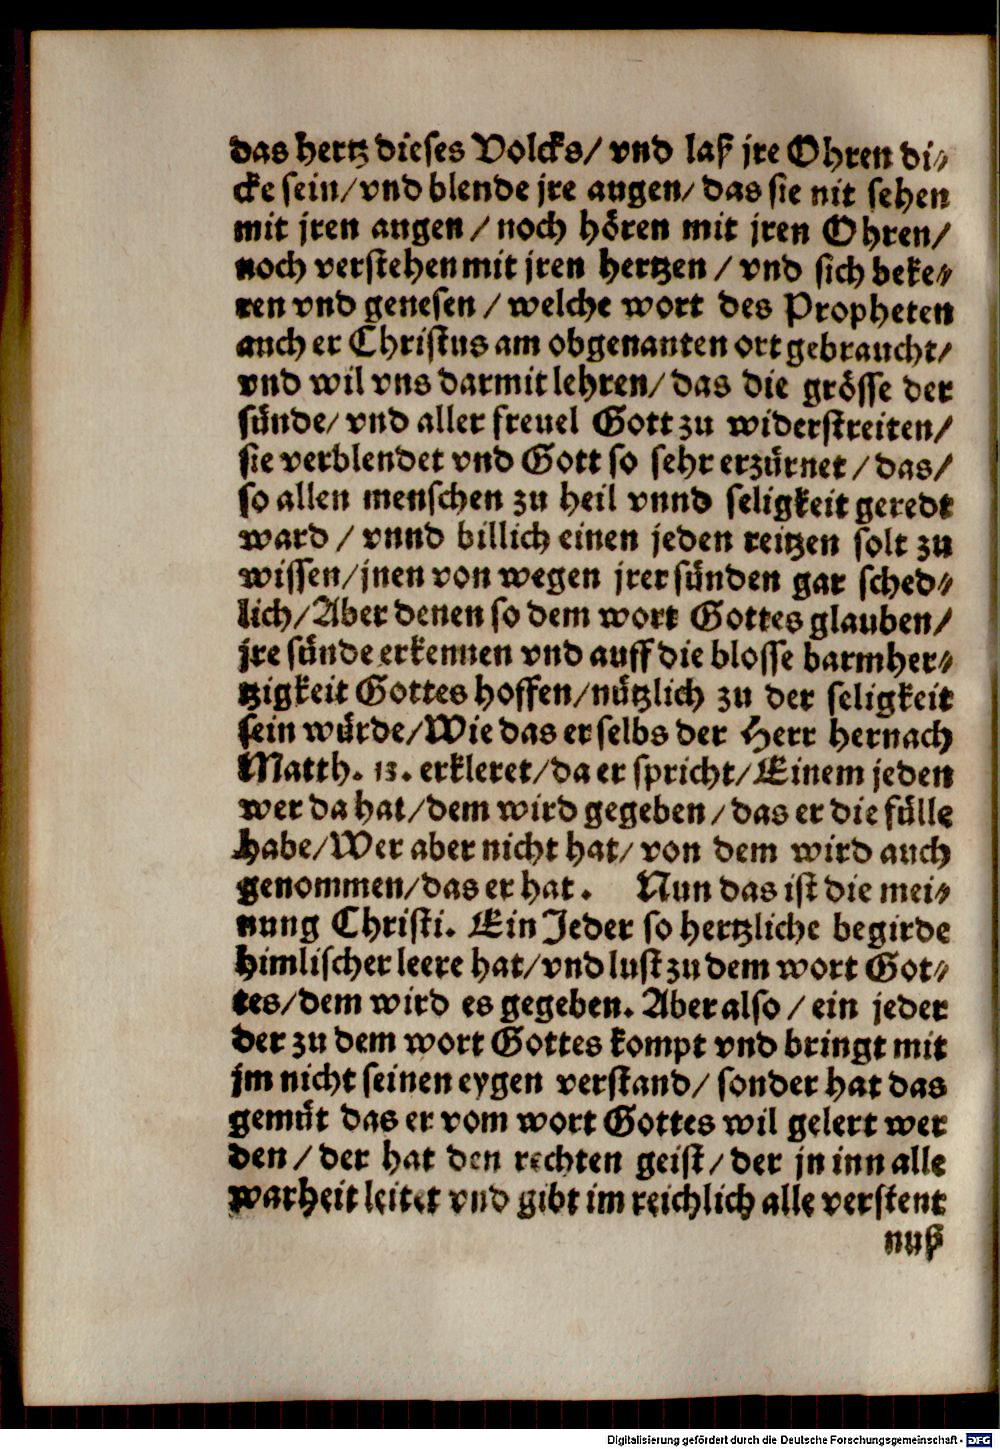 das hertz dieses Volcks/ vnd laß jre Ohren di⸗
cke sein/vnd blende jre augen/ das sie nit sehen
mit jren augen / noch hören mit jren Ohren/
noch verstehen mit jren hertzen / vnd sich beke⸗
ren vnd genesen / welche wort des Propheten
auch er Christus am obgenanten ort gebraucht/
vnd wil vns darmit lehren/ das die grösse der
sünde/ vnd aller freuel Gott zu widerstreiten/
sie verblendet vnd Gott so sehr erzürnet / das/
so allen menschen zu heil vnnd seligkeit geredt
ward / vnnd billich einen jeden reitzen solt zu
wissen/jnen von wegen jrer sünden gar sched⸗
lich/Aber denen so dem wort Gottes glauben/
jre sünde erkennen vnd auff die blosse barmher⸗
tzigkeit Gottes hoffen/nützlich zu der seligkeit
sein würde/Wie das er selbs der Herr hernach
Matth. 13. erkleret/da er spricht/Einem jeden
wer da hat/dem wird gegeben/das er die fülle
habe/Wer aber nicht hat/ von dem wird auch
genommen/das er hat. Nun das ist die mei⸗
nung Christi. Ein Jeder so hertzliche begirde
himlischer leere hat/vnd lust zu dem wort Got⸗
tes/dem wird es gegeben. Aber also / ein jeder
der zu dem wort Gottes kompt vnd bringt mit
jm nicht seinen eygen verstand/ sonder hat das
gemüt das er vom wort Gottes wil gelert wer
den / der hat den rechten geist/der jn inn alle
warheit leitet vnd gibt im reichlich alle verstent
nuß
Digitalisierung gefördert durch die Deutsche Forschungsgemeinschaft - DFG